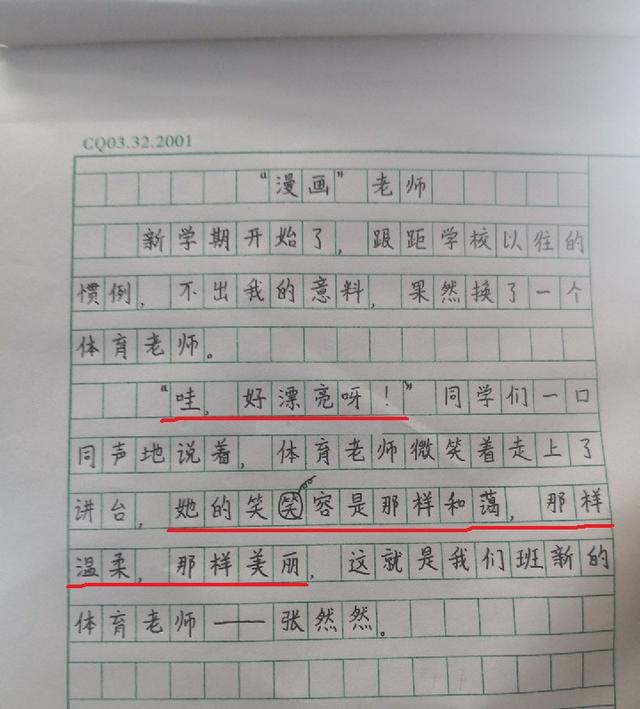 CQ03.32.2001
“漫画”老师
新学期开始了，跟距学校以往的
惯例，不出我的意料，果然换了一个
体育老师。
“哇，好漂亮呀！”同学们一口
同声地说着，体育老师微笑着走上了
讲台，她的笑笑容是那样和蔼，那样
温柔，那样美丽，这就是我们班新的
体育老师——张然然。